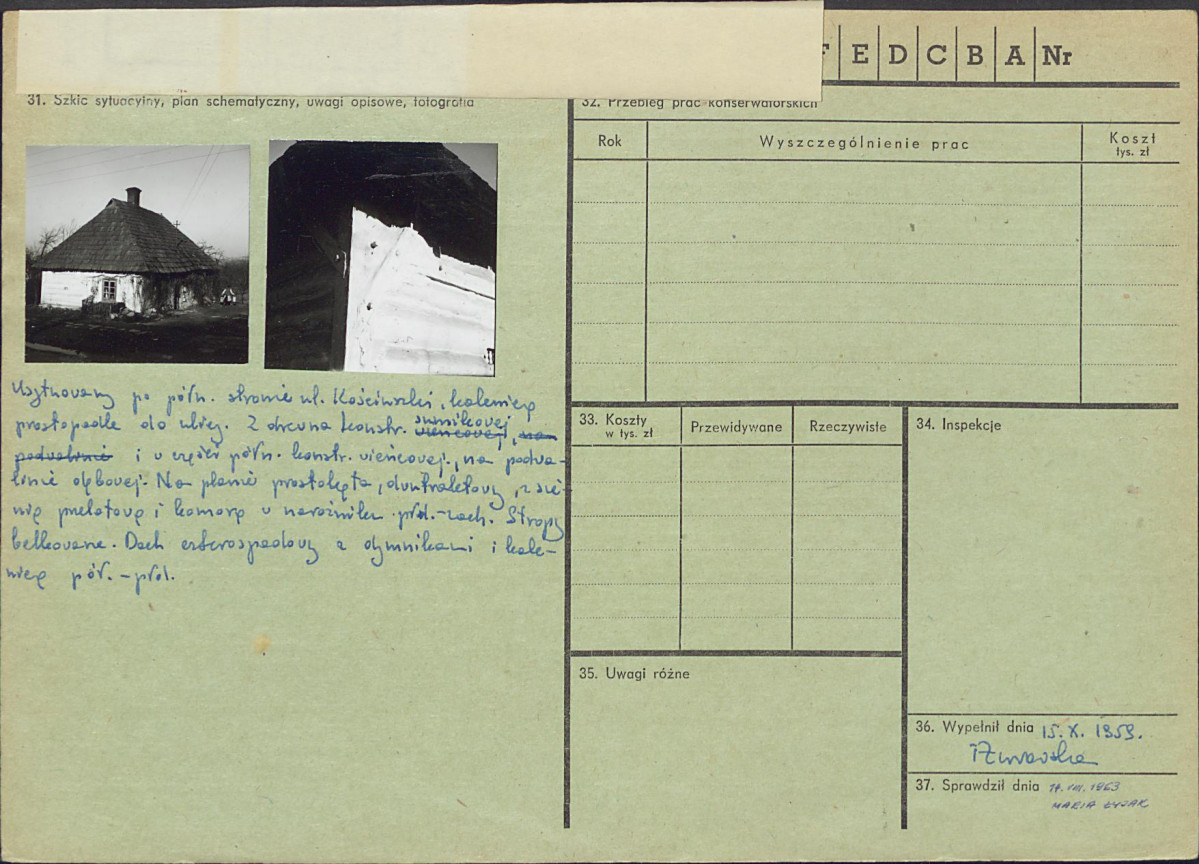 F E D C B A Nr
31. Szkic sytuacyjny, plan schematyczny, uwagi opisowe, fotografia
Usytuowany po półn. stronie ul. Kościuszki, kalenicą
prostopadle do ulicy. Z drewna konstr. sumikowej
wieńcowej, na
podwalinie i w części półn. konstr. wieńcowej, na podwa-
linie dębowej. Na planie prostokąta, dwutraktowy, z sie-
nią przelotową i komorą w narożniku płd.-zach. Stropy
belkowane. Dach czterospadowy z dymnikami i kale-
nicą pół.-płd.
32. Przebieg prac konserwatorskich
Rok Wyszczególnienie prac Koszt
tys. zł
33. Koszty
w tys. zł Przewidywane Rzeczywiste
34. Inspekcje
35. Uwagi różne
36. Wypełnił dnia 15.X.1959.
37. Sprawdził dnia 14.VIII.1963
MARIA ŁYJAK